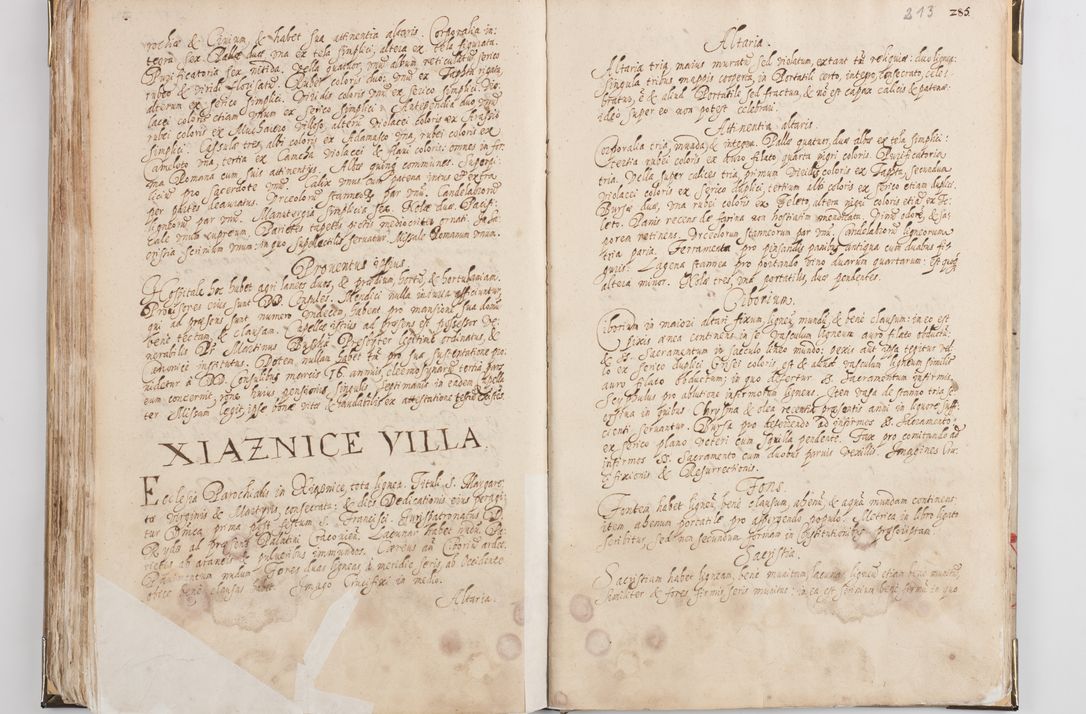 rochæ & Conum, & habet sua attinentia altaris. Corporalia in:
tegra sex. Pallæ duæ, una ex tela simplici, altera ex tela figurata.
Purificatoria sex, nitida. Vela quatuor, unum album reticulatum serico
rubeo & viridi floribus. Rubei coloris duo: unum ex Tapta rigata,
alterum ex serico simplici. Viridis coloris unum ex serico simplici. Vio:
lacei coloris etiam unum ex serico simplici. Antependia duo unum
rubei coloris ex Muchaiero villoso, alterum violacei coloris ex Arassio
simplici. Casulæ tres, albi coloris ex Adamasco una, rubei coloris ex
Cameloto una, tertia ex Cameda violacei & flavi coloris: omnes in for:
ma Romana cum suis attinentiis. Albæ quinque communes. Superpel:
licium pro sacerdote unum. Calix unus cum patena intus & extra
per partes deauratus. Urceolorum stanneorum par unum. Candelabrorum
ligneorum par unum. Manutergia simplicia sex. Nolæ duæ. Pacifi:
cale unum cupreum. Parietes tapetis pictis mediocriter ornati. In Sa:
cristia scrinium unum: in quo supellectilis servatur. Missale Romanum unum.
Proventus ipsius.
Hospitale hoc habet agri laneos duos, & prædium, hortum & hortulaniam.
Provisores eius sunt DD. Consules. Mendici nulla iniussa afficiuntur,
qui ad præsens sunt numero undecim, habent pro mansione sua domum
bene tectam, & clausam. Capellæ istius ad præsens est possessor Ve:
nerabilis Dnus Martinus Presbyter legitime ordinatus, &
canonice institutus. Dotem nullam habet tamen pro sua sustentatione pro:
videtur à DD. Consulibus marcis 16 annuis, eleemosynare tertia pars
eum concernit, ratione huius pensionis singulis septimanis in eadem Capella
ter Missam legit, ipse bonæ vitæ & laudabilis ex attestatione testium
XIAZNICE VILLA.
Ecclesia Parochialis in Xiąznice, tota lignea. Tituli S. Margare:
tæ Virginis & Martyris, consecrata: & dies Dedicationis eius peragi:
tur Dnica prima post festum S. Francisci. Iurispatronatus
ad præsens Palatini Cracoviensis. Lacunar habet
rietes ab araneis & pulveribus immundos. Cereus an Ciborium ardet.
Pavimentum nudum. Fores duas ligneas à meridie seris, ab occidente
obice bene clausas habet. Imago Crucifixi in medio.
Altaria.
213 285
Altaria.
Altaria tria, maius muratum, sed violatum, extant tamen reliquiæ: duo lignea:
singula tribus mappis cooperta, in Portatili certo, integro, consecrato, cele:
bratur, & est aliud Portatile sed fractum, & non est capax calicis & patenæ:
ideo super eo non potest celebrari.
Attinentia altaris.
Corporalia tria, munda & integra. Pallæ quatuor, duæ albæ ex tela simplici:
tertia rubei coloris ex auro filato quarta nigri coloris. Purificatoria
tria. Vela super calices tria, primum viridis coloris ex Tapta, secundum
violacei coloris ex serico duplici, tertium albi coloris ex serico etiam duplici.
Bursæ duæ, una rubei coloris ex Teleto, altera nigri coloris etiam ex Te:
leto. Panis recens de farina non hostiatim mendicata. Vinum odorem, & sa:
porem retinens. Urceolorum stanneorum par unum. Candelabrorum ligneorum
tria paria. Ferramenta pro pinsandis panibus antiqua cum duabus fi:
guris. Lagena stannea pro portando vino duarum quartarum: est quoque
altera minor. Nolæ tres, una portatilis, duæ pendentes.
Ciborium.
Ciborium in maiori altari fixum, ligneum mundum, & bene clausum: in eo est
Pixis ænea continens in se vasculum ligneum auro filato obductum,
& SS. Sacramentum in sacculo lineo mundo: pixis autem ipsa tegitur ve:
lo ex serico duplici Cœlei coloris. est & aliud vasculum ligneum simile
auro filato obductum; in quo defertur SS. Sacramentum infirmis.
Scyphulus pro ablutione infirmorum ligneus. Item vasa de stanno tria se:
orsina in quibus Chrysma & olea recentia præsentis anni in liquore suffi:
cienti servantur. Bursa pro deferendo ad infirmos SS. Sacramento
ex serico plano veteri cum squilla pendente. Fax pro comitando ad
infirmos SS. Sacramento cum duobus parvis vexillis. Imagines Cru:
cifixionis & Resurrectionis.
Fons.
Fontem habet ligneum bene clausum, ahenum, & aquam mundam continens:
item ahenum portatile pro aspergendo populo. Metrica in libro ligato
scribitur, sed non secundum formam in Institutionibus præscriptam.
Sacristia.
Sacristiam habet ligneam, bene munitam, lacunar ligneum etiam bene munitum,
similiter & fores firmis seris munitas: in ea est scrinium bene firmum in quo